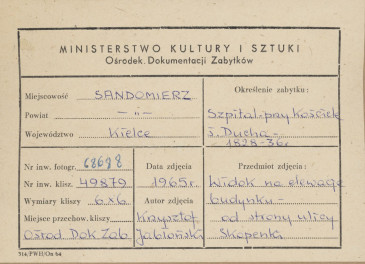 MINISTERSTWO KULTURY I SZTUKI
Ośrodek Dokumentacji Zabytków
Miejscowość SANDOMIERZ
Powiat — „ —
Województwo Kielce
Określenie zabytku:
Szpital przy Kościele
ś. Ducha -
1828-36r.
Nr inw. fotogr. 68698
Nr inw. klisz. 49879
Wymiary kliszy 6x6
Miejsce przechow. kliszy
Ośrod Dok Zab
Data zdjęcia
1965r.
Autor zdjęcia
Krzysztof
Jabłoński
Przedmiot zdjęcia:
Widok na elewację
budynku -
od strony ulicy
Skopenki
714/PWH/On 64